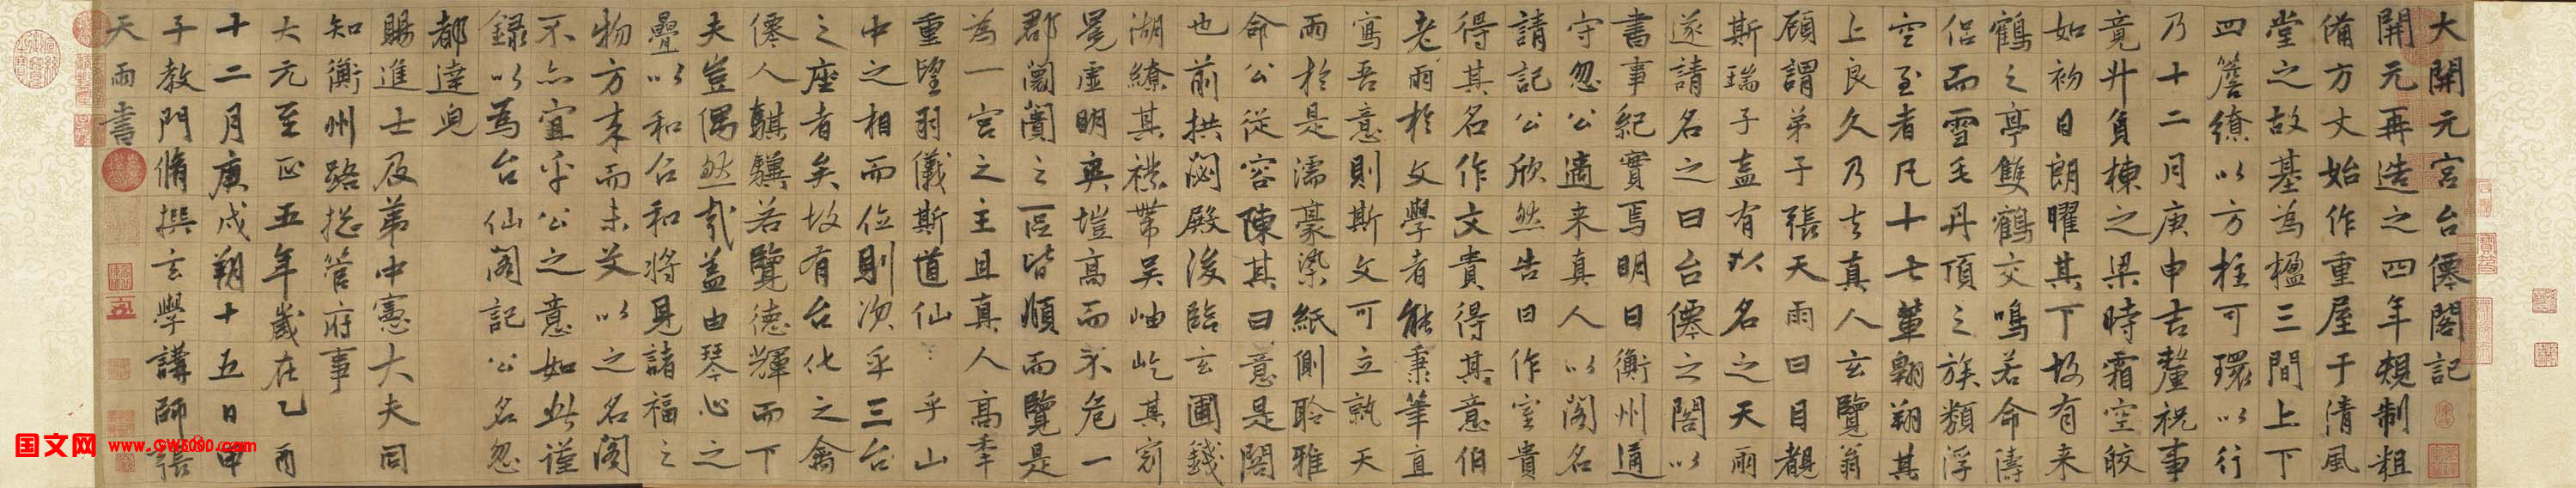 大開元宮台僊閣記
開元再造之四年規制粗
備方丈始作重屋于清風
堂之故基為楹三間上下
四簷繚以方柱可環以行
乃十二月庚申吉釐祝事
竟升負棟之梁時霜空皎
如初日朗曜其下故有来
鶴之亭雙鶴交鳴若命儔
侣而雪毛丹頂之族類浮
空至者凡十七輩翱翔其
上良久乃去真人玄覽翁
顧謂弟子張天雨曰目覩
斯瑞子盍有以名之天雨
遂請名之曰台僊之閣以
書事紀實焉明日衡州通
守忽公適来真人以閣名
請記公欣然告曰作室貴
得其名作文貴得其意伯
老雨於文學者能秉筆直
寫吾意則斯文可立就天
雨於是濡豪染紙側聆雅
命公從容陳其曰意是閣
也前拱閟殿後臨玄圃錢
湖繚其襟帶吴岫屹其窗
冕虚明爽塏高而不危一
郡闤闠之區皆順而覽是
為一宮之主且真人高率
重望羽儀斯道仙乎山
中之相而位則次乎三台
之座者矣故有台化之禽
僊人騏驥若覽德輝而下
夫豈偶然哉盖由琴心之
疊以和召和將見諸福之
物方来而未艾以之名閣
不亦宜乎公之意如此謹
録以為台仙閣記公名忽
都達皃
賜進士及第中憲大夫同
知衡州路総管府事
大元至正五年歲在乙酉
十二月庚戌朔十五日甲
子教門脩撰玄學講師張
天雨書
国文网 www.GW5000.com